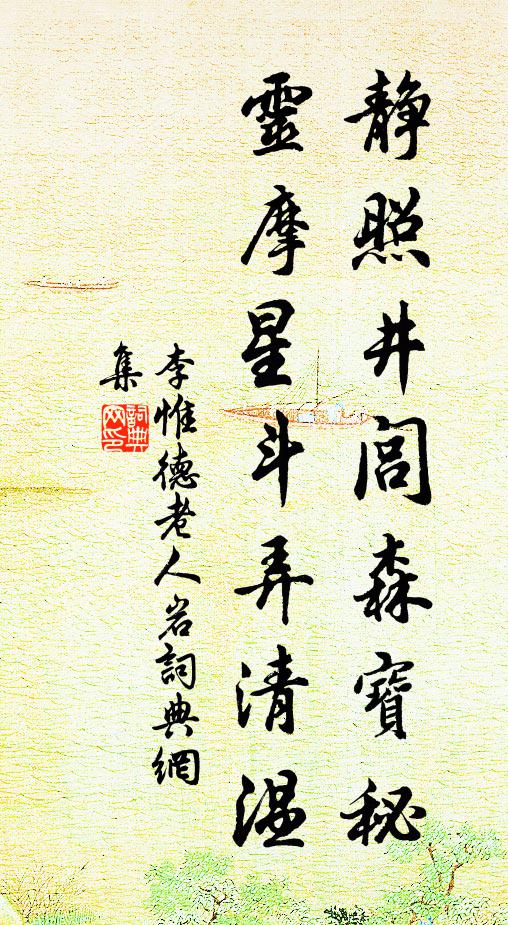 靜照井閭森寶秘
靈摩星斗弄清溫
李惟德老人岩詞典網
集
詞典
網印